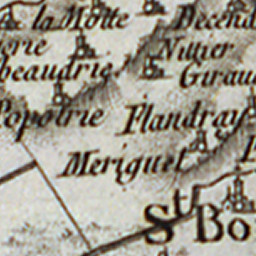 la Motte
Decend
erie
Nillier
beaudrie
Giraud
Popotrie
Flandray
Meriguet
St Bo